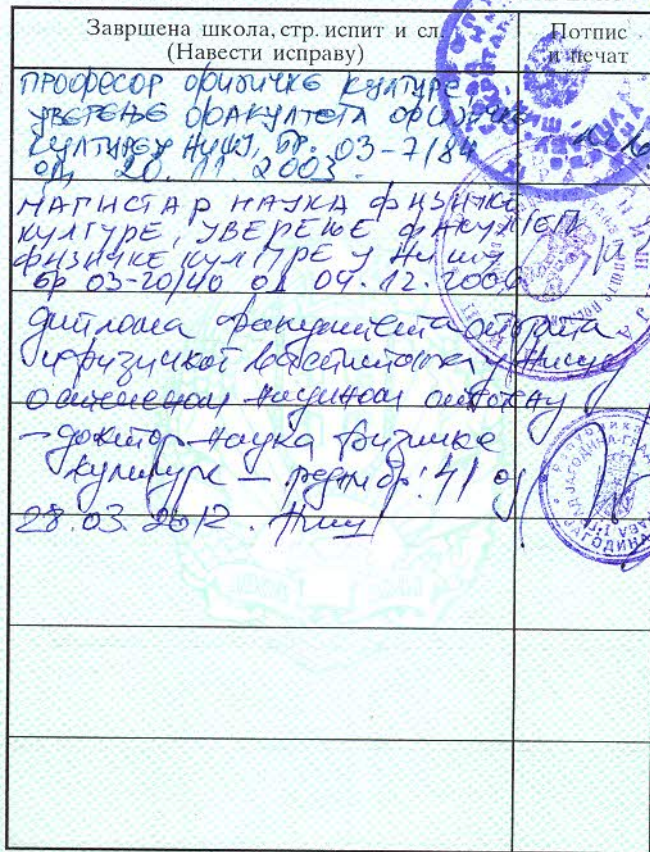 Завршена школа, стр. испит и сл.
(Навести исправу)
Потпис
и печат
ПРОФЕСОР ФИЗИЧКЕ КУЛТУРЕ,
УВЕРЕЊЕ ФАКУЛТЕТА ФИЗИЧКЕ
КУЛТУРЕ У НИШУ, БР. 03-7/84
ОД 20. 11. 2003.
МАГИСТАР НАУКА ФИЗИЧКЕ
КУЛТУРЕ, УВЕРЕЊЕ ФАКУЛТЕТА
ФИЗИЧКЕ КУЛТУРЕ У НИШУ
БР 03-20/40 ОД 04.12.
диплома факултета спорта
и физичког васпитања у Нишу
о стеченом научном степену
- доктор наука физичке
културе - редни бр: 41 од
28.03.2012. Ниш
ЈАГОДИНА